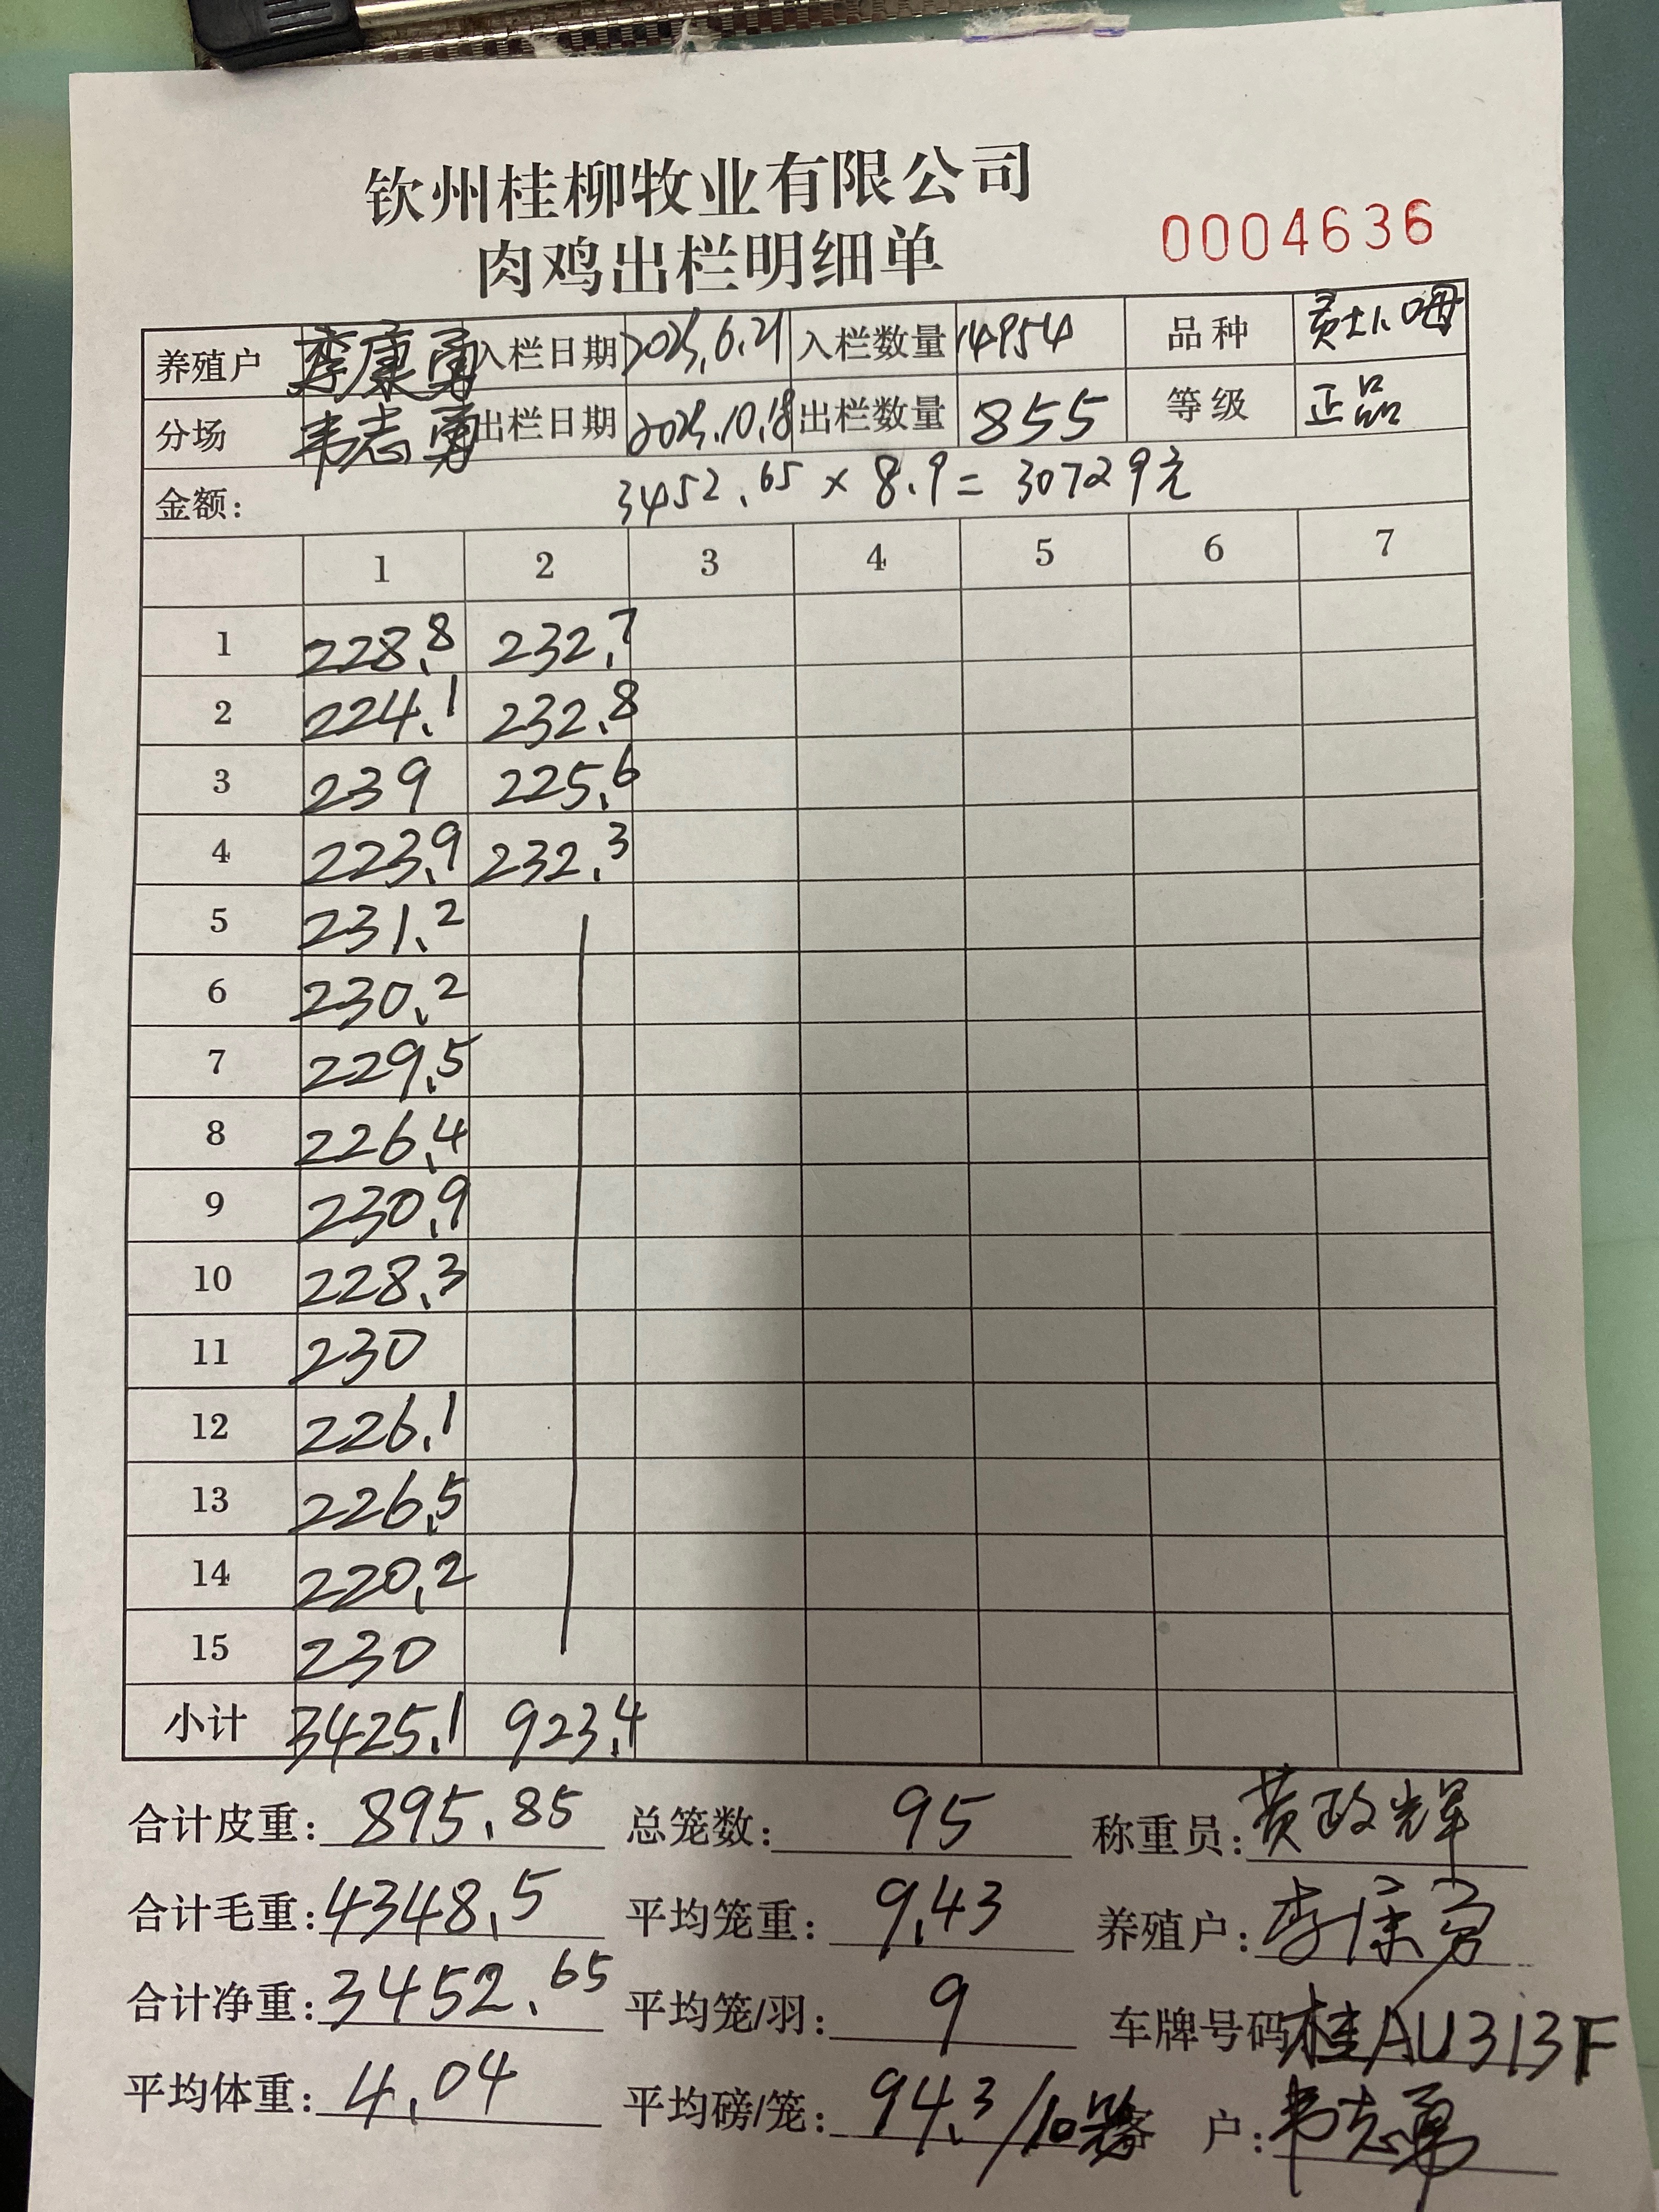 钦州桂柳牧业有限公司
肉鸡出栏明细单
0004636
养殖户 李康勇 入栏日期 2025.6.21 入栏数量 14954 品种
分场 韦志勇 出栏日期 2025.10.18 出栏数量 855 等级 正品
金额: 3452.65 × 8.9 = 30729元
1 2 3 4 5 6 7
1 228.8 232.7
2 224.1 232.8
3 239 225.6
4 223.9 232.3
5 231.2
6 230.2
7 229.5
8 226.4
9 230.9
10 228.3
11 230
12 226.1
13 226.5
14 220.2
15 230
小计 3425.1 923.4
合计皮重: 895.85 总笼数: 95 称重员: 黄政辉
合计毛重: 4348.5 平均笼重: 9.43 养殖户: 李康勇
合计净重: 3452.65 平均笼/羽: 9 车牌号码 桂AU313F
平均体重: 4.04 平均磅/笼: 94.3/10 客户: 韦志勇